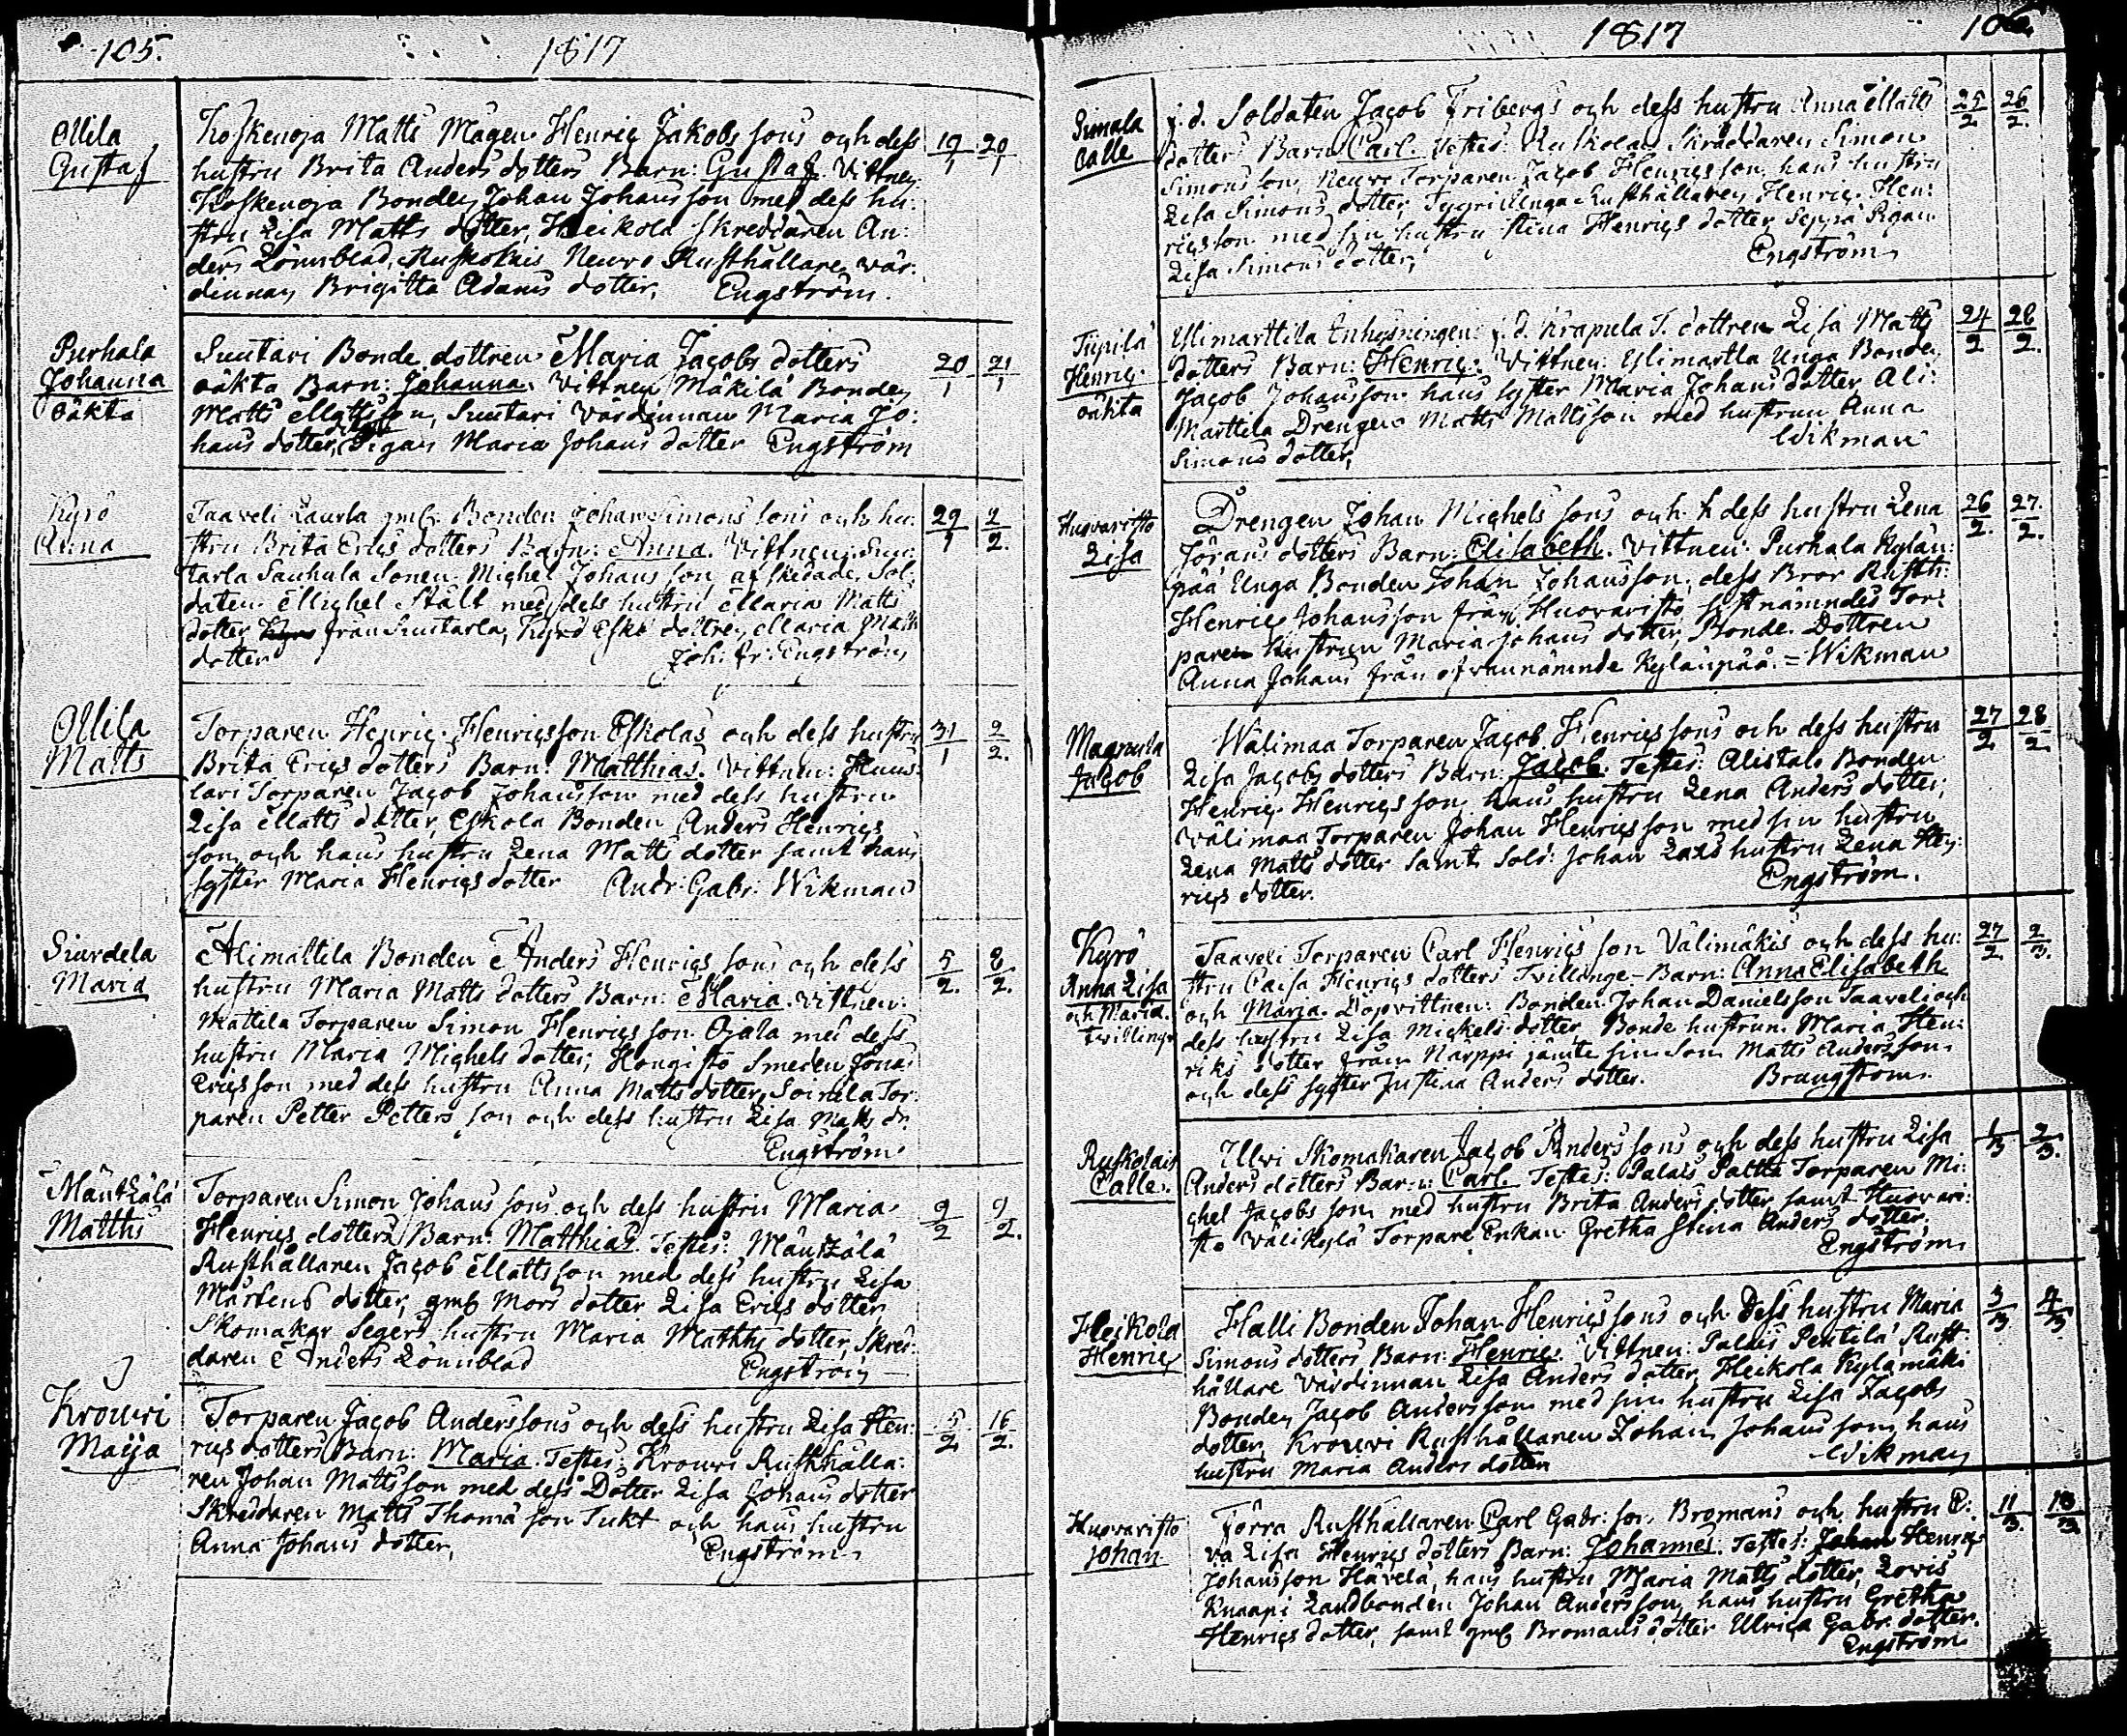 105.
1817
Ollila
Gustaf
Koskenoja Matts Mågen Henric Jakobs sons och dess
hustru Brita Anders dotters Barn: Gustaf. Vittnen
Koskenoja Bonden Johan Johansson med dess hu:
stru Lisa Matts dotter, Heikola skreddaren An:
ders Lönnblad, Ruskolais Neuvo Rusthållare vär:
dinnan Brigitta Adams dotter, Engström.
19/1 20/1
Purhala
Johanna
oäkta
Suutari Bonde dottren Maria Jacobs dotters
oäkta Barn: Johanna. Vittnen Mäkilä Bonden
Matts Mattsson, Suutari Värdinnan Maria Jo:
hans dotter, Pigan Maria Johans dotter Engström
20/1 21/1
Kyrö
Anna
Taaveli Laurla gmle Bonden Johan Simons sons och hu:
stru Brita Erics dotters Barn: Anna. Vittnen: Suu:
tarla Sauhula Sonen Michel Johans son, afskedade Sol:
daten Michel Stålt med dess hustru Maria Matts
dotter från Suutarla, Kyrö Esko dottren Maria Matts
dotter Joh: Fr: Engström
29/1 2/2.
Ollila
Matts
Torparen Henric Henricsson Eskolas och dess hustru
Brita Erics dotters Barn: Matthias. Vittnen: Huus:
lari Torparen Jacob Johansson med dess hustru
Lisa Matts dotter, Eskola Bonden Anders Henrics
son och hans hustru Lena Matts dotter samt hans
syster Maria Henrics dotter Andr: Gabr: Wikman
31/1 2/2.
Siurdela
Maria
Alimattila Bonden Anders Henrics sons och dess
hustru Maria Matts dotters Barn: Maria. Vittnen:
Mattila Torparen Simon Henrics son Ojala med dess
hustru Maria Michels dotter, Hongisto Smeden Jonas
Ericsson med dess hustru Anna Matts dotter, Soinila Tor:
paren Petter Petters son och dess hustru Lisa Matts dr.
Engström
5/2. 8/2.
Mäntzälä
Matths
Torparen Simon Johans sons och dess hustru Maria
Henrics dotters Barn: Matthias. Testes: Mäntzälä
Rusthållaren Jacob Mattsson med dess hustru Lisa
Mårtens dotter, gmle Mors dotter Lisa Erics dotter,
Skomakar Segers hustru Maria Matths dotter, Skred:
daren Anders Lönnblad Engström
9/2 9/2.
Krouvi
Maija
Torparen Jacob Anderssons och dess hustru Lisa Hen:
rics dotters Barn: Maria. Testes: Krouvi Rusthålla:
ren Johan Mattsson med dess Dotter Lisa Johans dotter
Skreddaren Matts Thomæ son Tukt och hans hustru
Anna Johans dotter, Engström
15/2 16/2.
1817
106.
Simala
Calle
f.d. Soldaten Jacob Fribergs och dess hustru Anna Matts
dotters Barn Carl. Testes: Ruskolais Skräddaren Simon
Simons son, Neuvo Torparen Jacob Henricsson, hans hustru
Lisa Simons dotter, Unga Rusthållaren Henric Hen:
ricsson med sin hustru Stina Henrics dotter, Seppä Pigan
Lisa Simons dotter, Engström
25/2 26/2.
Tupila
Henric
oäkta
Ylimarttila Inhysningen f.d. Krapula T. dottren Lisa Matts
dotters Barn: Henric. Vittnen: Ylimartla Unga Bonden
Jacob Johansson hans syster Maria Johans dotter, Ali:
Marttila Drengen Matts Mattsson med hustrun Anna
Simons dotter, Wikman
24/2 26/2.
Huovaristo
Lisa
Drengen Johan Michels sons och dess hustru Lena
Jörans dotters Barn: Elisabeth. Vittnen: Purhala Kylän:
pää Unga Bonden Johan Johansson, dess Bror Rusth:
Henric Johansson från Huovaristo, sistnämndes Tor:
paren hustrun Maria Johans dotter, Bonde Dottren
Anna Johans från ofvannämnde Kylänpää. = Wikman
26/2. 27./2.
Magnula
Jacob
Wälimaa Torparen Jacob Henrics sons och dess hustru
Lisa Jacobs dotters Barn: Jacob. Testes: Alistalo Bonden
Henric Henrics son, hans hustru Lena Anders dotter,
Wälimaa Torparen Johan Henricsson med sin hustru
Lena Matts dotter samt Sold: Johan Laxs hustru Lena Hen:
rics dotter. Engström.
27/2 28/2.
Kyrö
Anna Lisa
och Maria.
Tvillingr
Taaveli Torparen Carl Henrics son Välimäkis och dess hu:
stru Caisa Henrics dotters Tvillinge-Barn: Anna Elisabeth
och Maria. Dopvittnen: Bonden Johan Danielsson Taaveli och
dess hustru Lisa Mickels dotter, Bonde hustrun Maria Hen:
riks dotter från Närppi jämte sin Son Matts Andersson
och dess syster Justina Anders dotter. Brungstom.
27/2. 2/3.
Ruskolais
Calle.
Ulvi Skomakaren Jacob Anders sons och dess hustru Lisa
Anders dotters Barn: Carl. Testes: Palais Torparen Mi:
chel Jacobs son med hustru Brita Anders dotter, samt Huovari:
sto Wälikylä Torpare Enkan Gretha Stina Anders dotter.
Engström
1/3 2/3.
Heikola
Henric
Halli Bonden Johan Henrics sons och Dess hustru Maria
Simons dotters Barn: Henric. Vittnen: Palais Pertilä Rust:
hållare Värdinnan Lisa Anders dotter, Heikola Kylämäki
Bonden Jacob Andersson med sin hustru Lisa Jacobs
dotter, Krouvi Rusthållaren Johan Johans son, hans
hustru Maria Anders dotter Wikman
3/3 4/3
Huovaristo
Johan
Förra Rusthållaren Carl Gabr: son Bromans och hustru E:
va Lisa Henrics dotters Barn: Johannes. Testes: Johan Henrics
Johansson Hävelä, hans hustru Maria Matts dotter, Lovis
Knaapi Landbonden Johan Andersson, hans hustru Gretha
Henrics dotter, samt gmle Bromans dotter Ulrica Gabr. dotter.
Engström
11/3. 13/3